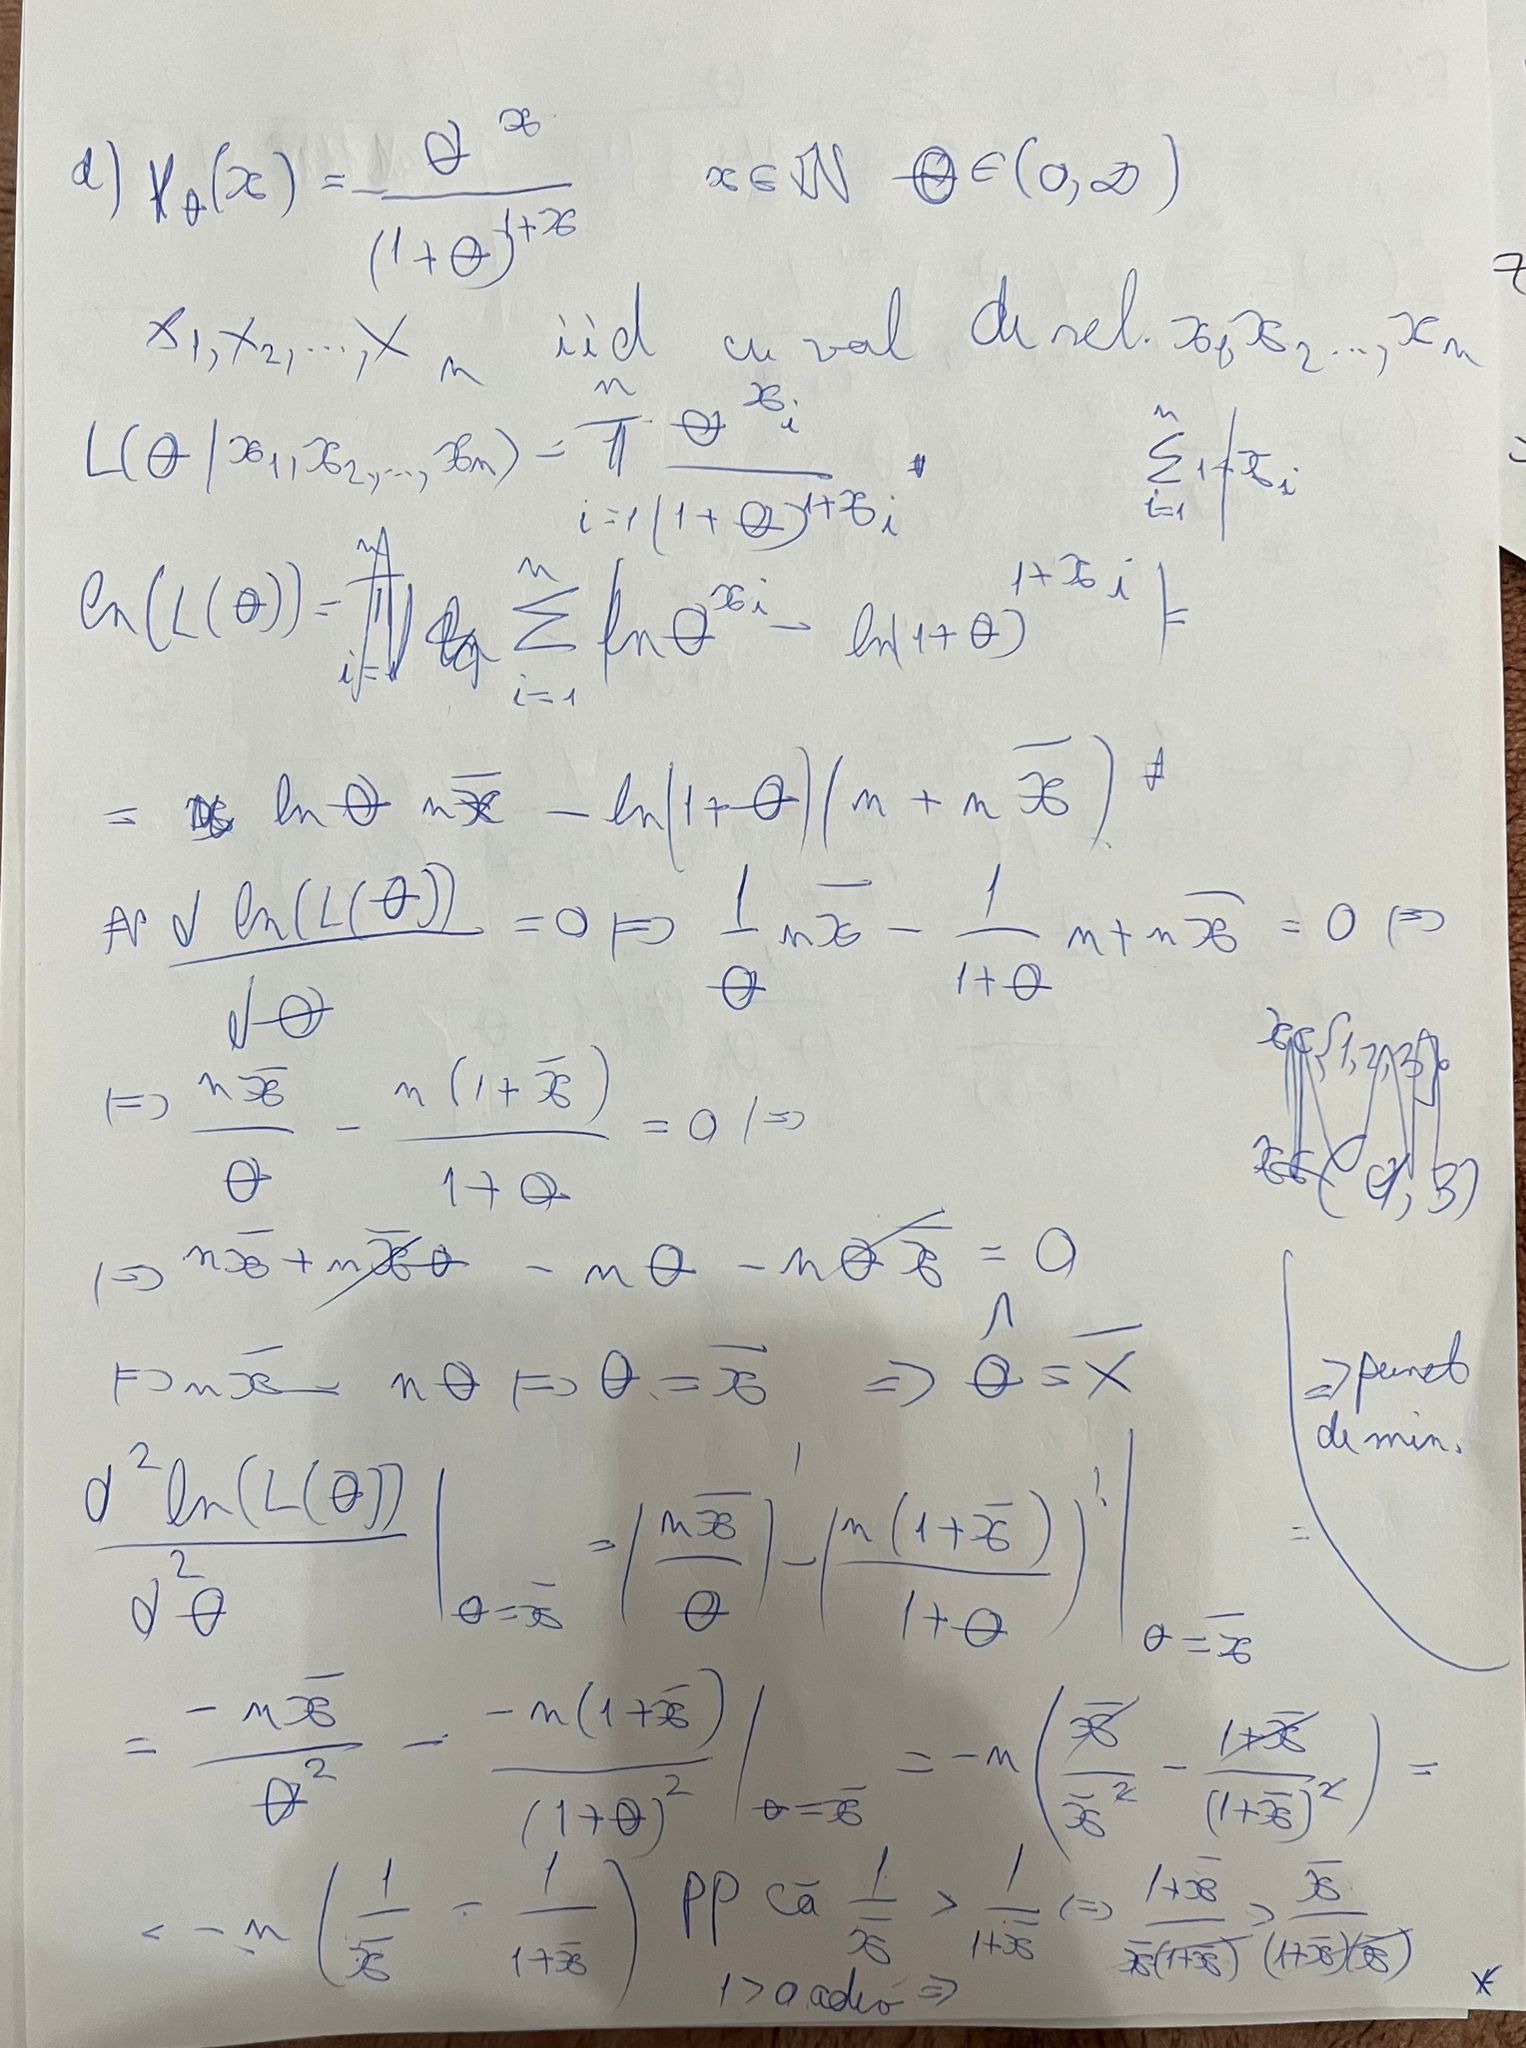 d) p_θ(x) = θ^x / (1+θ)^{1+x}   x ∈ ℕ   θ ∈ (0, ∞)
X₁, X₂, ..., X_n iid cu val de sel. x₁, x₂ ..., x_n
L(θ | x₁, x₂, ..., x_n) = ∏_{i=1}^{n} θ^{x_i} / (1+θ)^{1+x_i}   ∑_{i=1}^{n} 1+x_i
ln(L(θ)) = ∑_{i=1}^{n} (ln θ^{x_i} − ln(1+θ)^{1+x_i}) =
= ln θ n x̄ − ln(1+θ)(n + n x̄)
d ln(L(θ)) / dθ = 0 ⇔ 1/θ n x̄ − 1/(1+θ) n + n x̄ = 0 ⇔
⇔ n x̄ / θ − n(1+x̄) / (1+θ) = 0 ⇔
x ∈ {1, 2, 3}
⇔ n x̄ + n x̄ θ − n θ − n θ x̄ = 0
⇔ n x̄ − n θ ⇔ θ = x̄ ⇒ θ̂ = X̄
⇒ punct
de min.
d² ln(L(θ)) / d²θ |_{θ = x̄} = (n x̄ / θ)' − (n(1+x̄) / (1+θ))' |_{θ = x̄} =
= −n x̄ / θ² − −n(1+x̄) / (1+θ)² |_{θ = x̄} = −n (x̄ / x̄² − (1+x̄) / (1+x̄)²) =
= −n (1/x̄ − 1/(1+x̄)) PP că 1/x̄ > 1/(1+x̄) ⇔ (1+x̄) / x̄(1+x̄) > x̄ / (1+x̄)(x̄)
1 > 0 adev ⇒